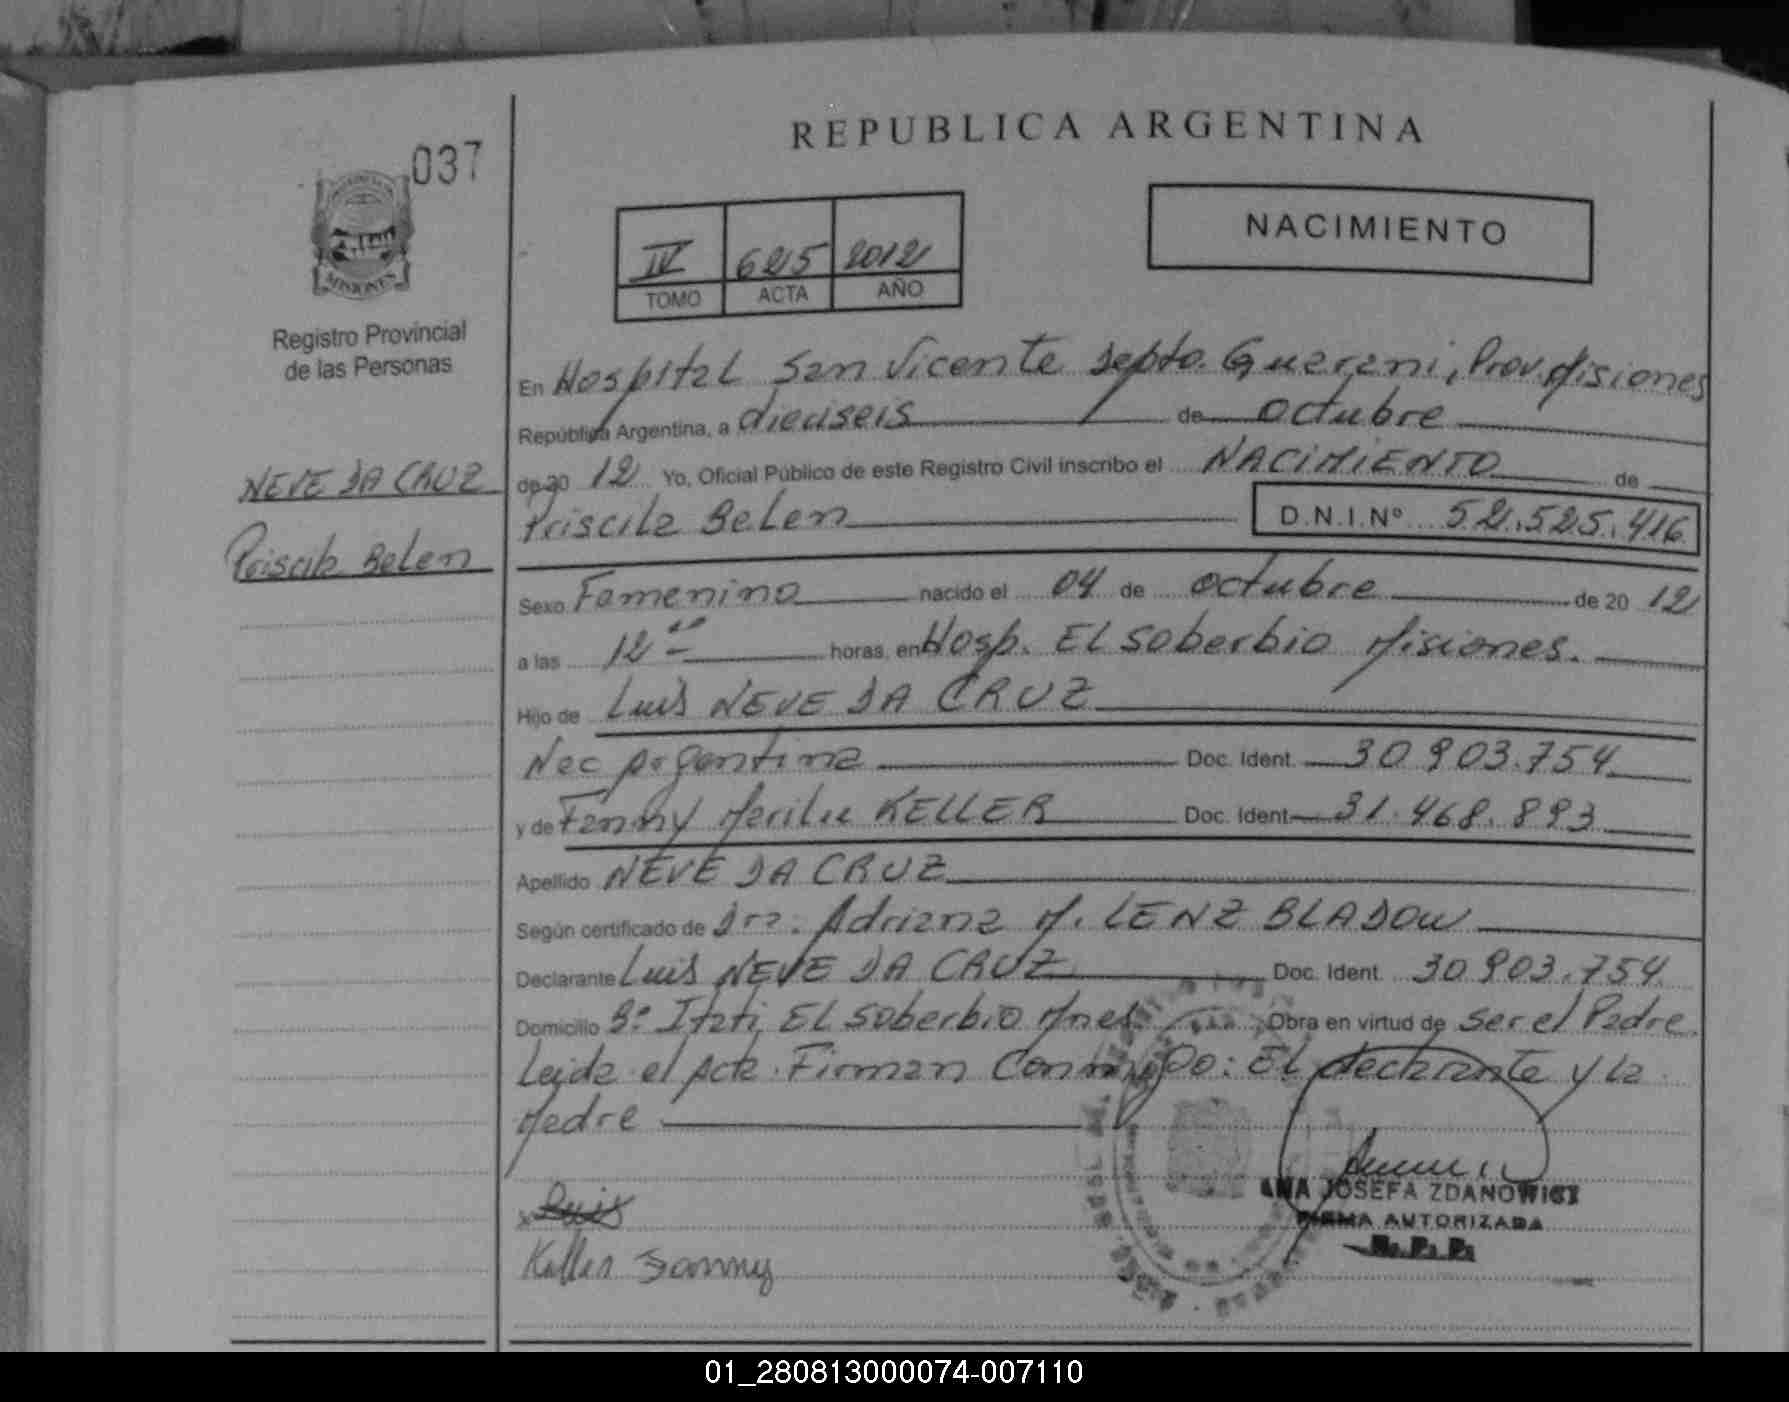 037
REPUBLICA ARGENTINA
NACIMIENTO
IV 625 2012
TOMO ACTA AÑO
MISIONES
Registro Provincial
de las Personas
NEVE DA CRUZ
Priscila Belen
En Hospital San Vicente Depto. Guarani, Prov. Misiones
República Argentina, a dieciseis de octubre
de 20 12 Yo, Oficial Público de este Registro Civil inscribo el NACIMIENTO de
Priscila Belen D.N.I.Nº 52.525.416
Sexo Femenino nacido el 04 de octubre de 20 12
a las 12 00 horas, en Hosp. El Soberbio Misiones.
Hijo de Luis NEVE DA CRUZ
Nac Argentina Doc. Ident. 30 903.754
y de Fanny Marilu KELLER Doc. Ident 31.468.893
Apellido NEVE DA CRUZ
Según certificado de Dra. Adriana M. LENZ BLADOW
Declarante Luis NEVE DA CRUZ Doc. Ident. 30 903.754
Domicilio Bº Itati El Soberbio Mnes Obra en virtud de ser el Padre
Leida el Acta Firman Conmigo: El declarante y la
Madre
x Luis
ANA JOSEFA ZDANOWICZ
FIRMA AUTORIZADA
R.P.P.
Keller Fanny
01_280813000074-007110